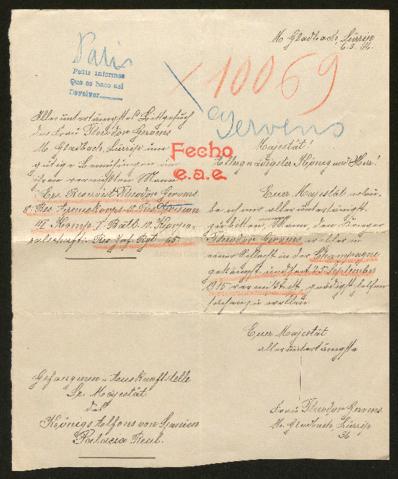 M. Gladbach, Lürrip
6.3.16
Paris
Petit informes
Que se haco asi
Devolver
10069
Gervens
Alleruntertänigstes Bittgesuch
der Frau Theodor Gervens
M. Gladbach, Lürrip um
gütige Bemühungen um
ihren vermißten Mann
Ers. Reservist Theodor Gervens
8. Res. Armeekorps Res. Division
Komp. Batl. Korpo-
ralschaft Res. Inf. Rgt. 65
Fecho
e.a.e.
Majestät!
Allergnädigster König und Herr!
Eure Majestät erlau-
be ich mir alleruntertänigst
zu bitten, Mann, den Krieger
Theodor Gervens, welcher in
einer Schlacht in der Champagne
gekämpft und seit 25. September
1915 vermißt ist, gnädigst helfen
forschen zu wollen
Eurer Majestät
alleruntertänigste
Frau Theodor Gervens
M. Gladbach Lürrip
Gefangenen Auskunftstelle
Sr. Majestät
des
Königs Alfons von Spanien
Palacio Real.